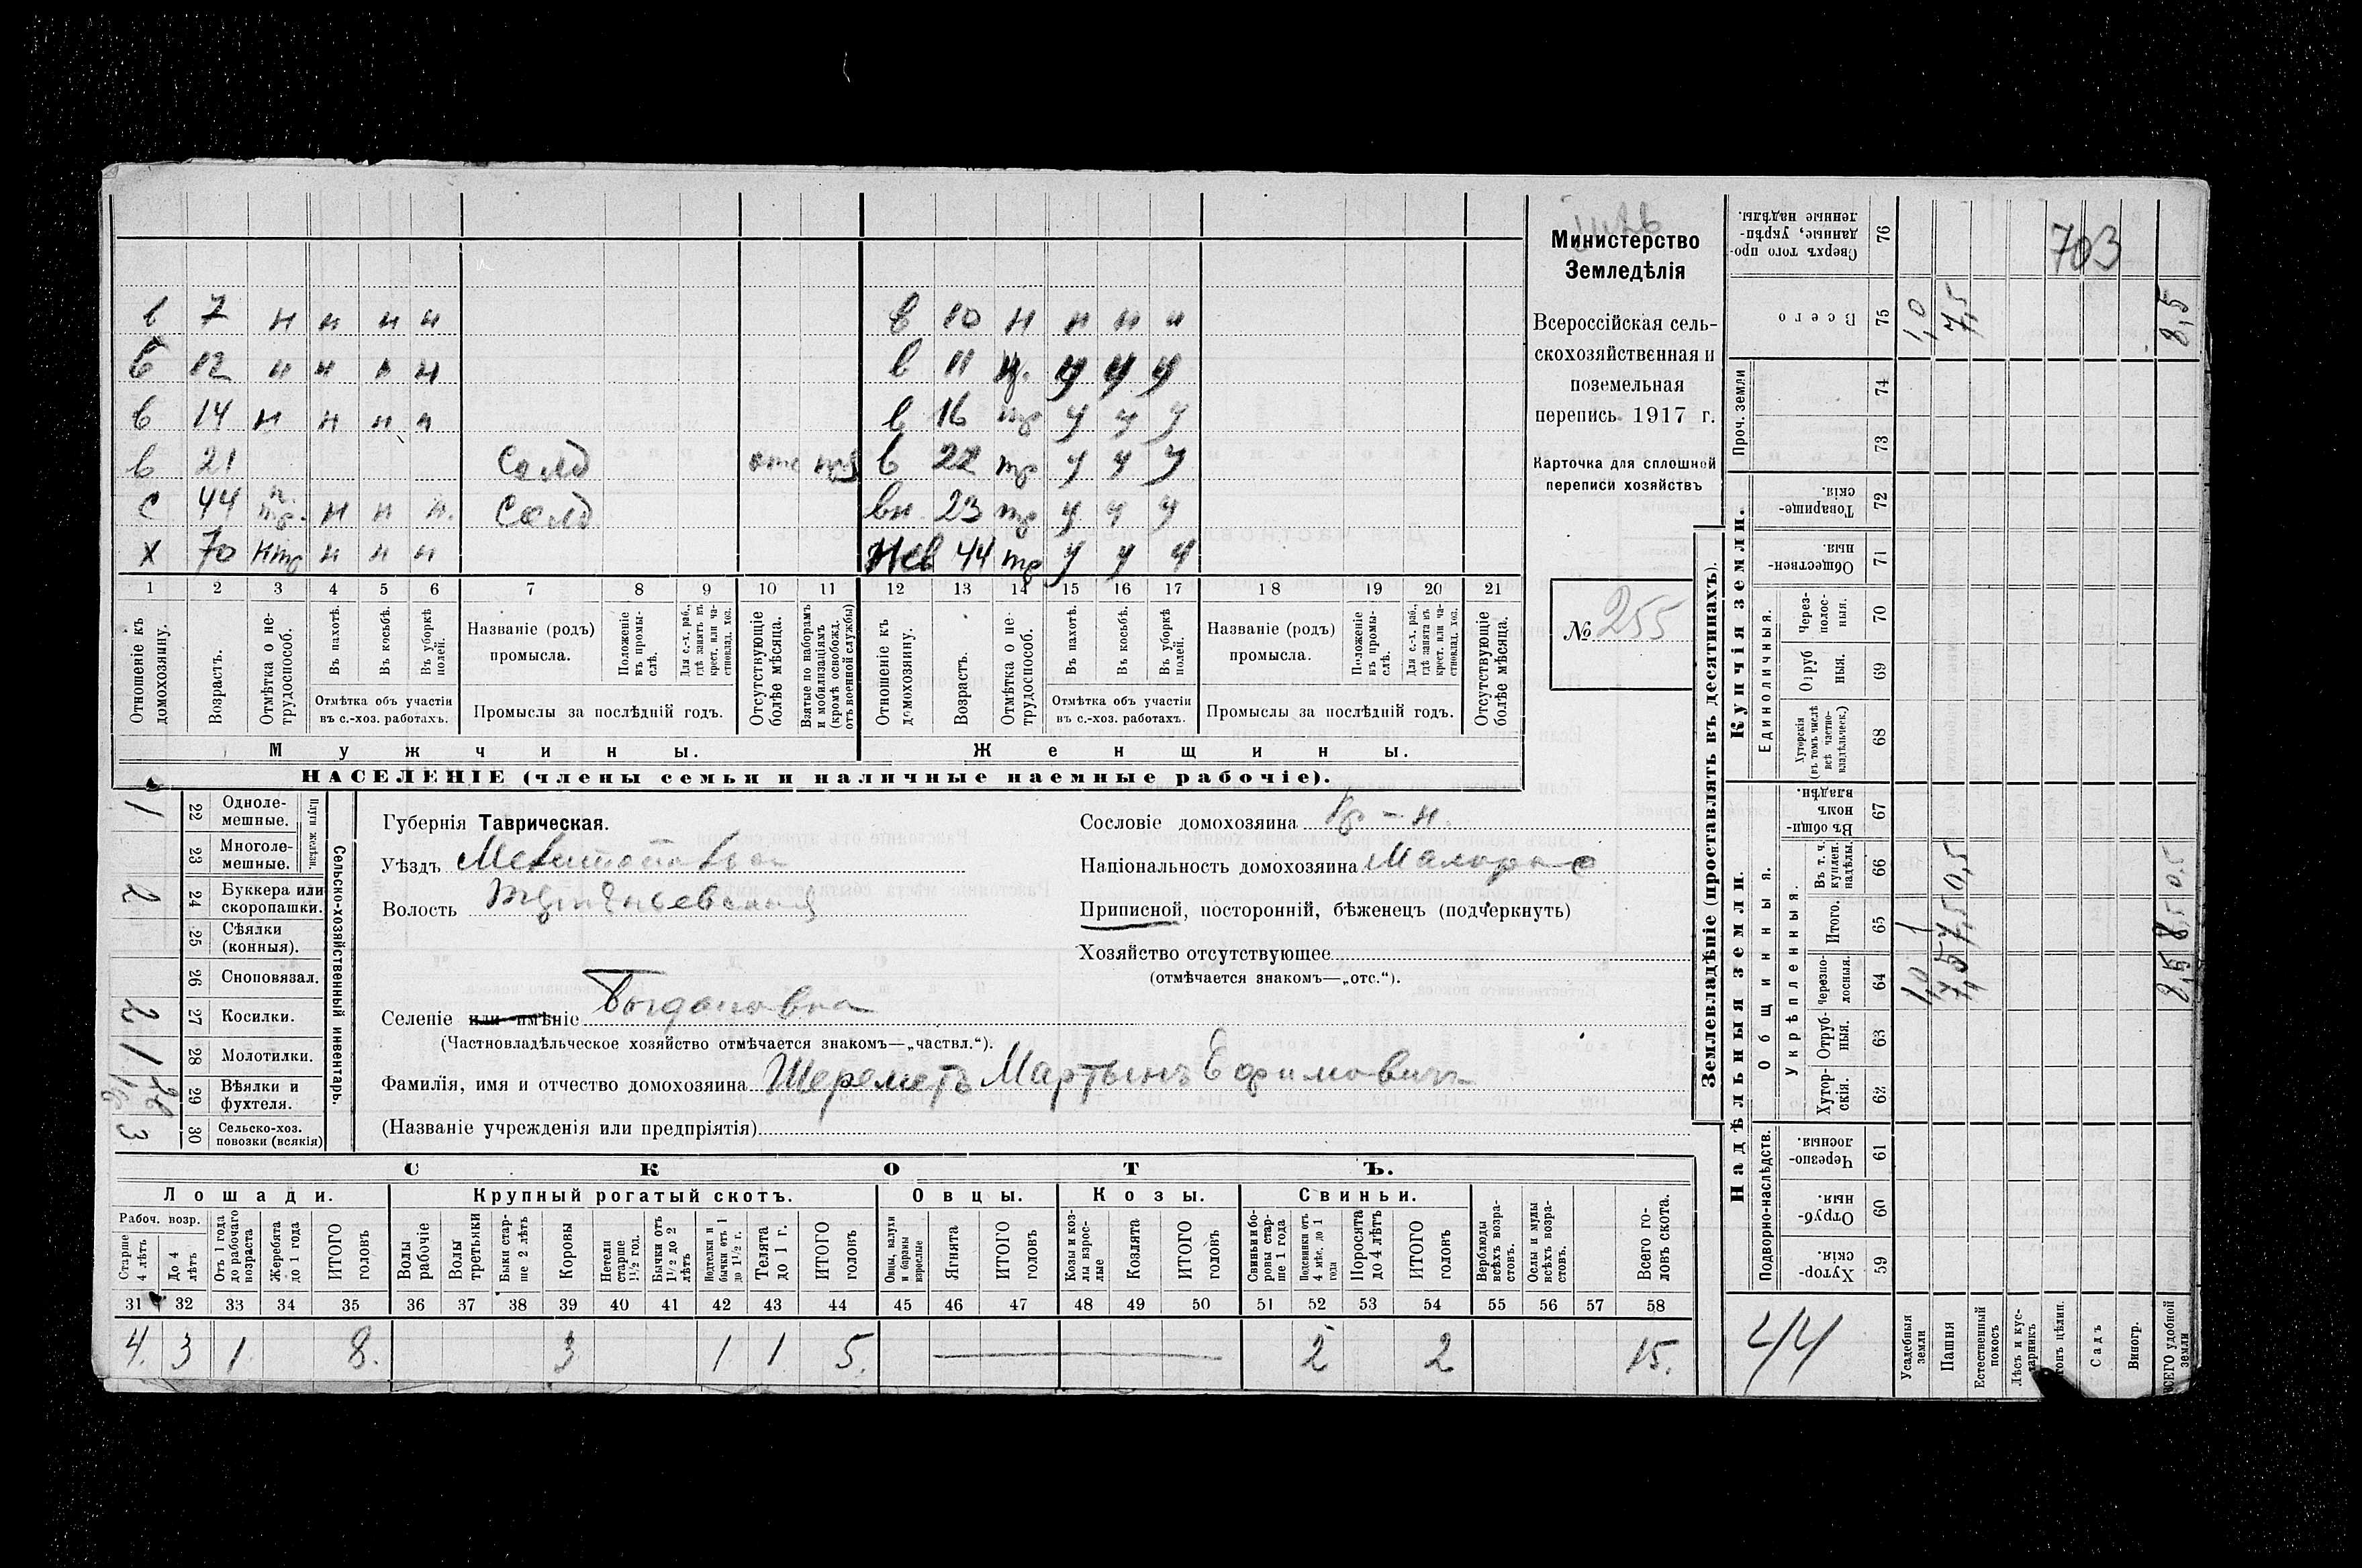 Министерство
Земледѣлія
Всероссійская сель-
скохозяйственная и
поземельная
перепись 1917 г.
Карточка для сплошной
переписи хозяйствъ
№ 255
в 7 н н н н
в 12 н н н н
в 14 н н н н
в 21 Солд отс
с 44 н н н Солд
х 70 нтр н н н
в 10 н н н н
в 11 у у у
в 16 тр у у у
в 22 тр у у у
вн 23 тр у у у
нев 44 тр у у у
1 2 3 4 5 6 7 8 9 10 11 12 13 14 15 16 17 18 19 20 21
Отношеніе къ домохозяину.
Возрастъ.
Отмѣтка о не-трудоспособ.
Въ пахотѣ.
Въ косьбѣ.
Въ уборкѣ полей.
Отмѣтка объ участіи
въ с.-хоз. работахъ.
Названіе (родъ)
промысла.
Положеніе въ промы-слѣ.
Для с.-х. раб., гдѣ занятъ въ крест. или ча-стновлад. хоз.
Промыслы за послѣдній годъ.
Отсутствующіе болѣе мѣсяца.
Взятые по наборамъ и мобилизаціямъ (кромѣ освобожд. отъ военной службы)
Отношеніе къ домохозяину.
Возрастъ.
Отмѣтка о не-трудоспособ.
Въ пахотѣ.
Въ косьбѣ.
Въ уборкѣ полей.
Отмѣтка объ участіи
въ с.-хоз. работахъ.
Названіе (родъ)
промысла.
Положеніе въ промы-слѣ.
Для с.-х. раб., гдѣ занята въ крест. или ча-стновлад. хоз.
Промыслы за послѣдній годъ.
Отсутствующіе болѣе мѣсяца.
Мужчины.
Женщины.
НАСЕЛЕНІЕ (члены семьи и наличные наемные рабочіе).
Сельско-хозяйственный инвентарь.
Плуги желѣзн.
22 Одноле-мешные. 1
23 Многоле-мешные.
24 Буккера или скоропашки. 2
25 Сѣялки (конныя).
26 Сноповязал.
27 Косилки. 2
28 Молотилки. 1
29 Вѣялки и фухтеля.
30 Сельско-хоз. повозки (всякія) 3
Губернія Таврическая.
Уѣздъ Мелитопольск
Волость
Селеніе или имѣніе Богдановка
(Частновладѣльческое хозяйство отмѣчается знакомъ—„частвл.“).
Фамилія, имя и отчество домохозяина Шереметъ Мартынъ Ефимовичъ
(Названіе учрежденія или предпріятія)
Сословіе домохозяина кр-н.
Національность домохозяина Малорос
Приписной, посторонній, бѣженецъ (подчеркнуть)
Хозяйство отсутствующее
(отмѣчается знакомъ—„отс.“).
СКОТЪ.
Лошади.
Крупный рогатый скотъ.
Овцы.
Козы.
Свиньи.
Рабоч. возр.
Старше 4 лѣтъ
До 4 лѣтъ
Отъ 1 года до рабочаго возраста
Жеребята до 1 года
ИТОГО головъ
Волы рабочіе
Волы третьяки
Быки стар-ше 2 лѣтъ
Коровы
Нетели старше 1½ год.
Бычки отъ 1½ до 2 лѣтъ
Подтелки и бычки отъ 1 до 1½ г.
Телята до 1 г.
ИТОГО головъ
Овцы, валухи и бараны взрослые
Ягнята
ИТОГО головъ
Козы и коз-лы взрос-лые
Козлята
ИТОГО головъ
Свиньи и бо-ровы стар-ше 1 года
Подсвинки отъ 4 мѣс. до 1 года
Поросята до 4 лѣтъ
ИТОГО головъ
Верблюды всѣхъ возра-стовъ.
Ослы и мулы всѣхъ возра-стовъ.
Всего го-ловъ скота.
31 32 33 34 35 36 37 38 39 40 41 42 43 44 45 46 47 48 49 50 51 52 53 54 55 56 57 58
4. 3 1 8. 3 1 1 5. 2 2 15.
Землевладѣніе (проставлять въ десятинахъ).
Надѣльныя земли.
Купчія земли.
Подворно-наслѣдств.
Общинныя.
Укрѣпленныя.
Единоличныя.
Проч. земли
59 Хутор-скія.
60 Отруб-ныя.
61 Черезпо-лосныя.
62 Хутор-скія.
63 Отруб-ныя.
64 Черезпо-лосныя. 1,0 7,5 8,5
65 Итого. 1 7,5 8,5
66 Въ т. ч. куплен. надѣлы. 0,5 0,5
67 Въ общин номъ владѣн.
68 Хуторскія (въ томъ числѣ всѣ частно-владѣльческ.)
69 Отруб ныя.
70 Через-полос-ныя.
71 Обществен-ныя.
72 Товарище-скія.
73
74
75 Всего 1,0 7,5 8,5
76 Сверхъ того про-данные, укрѣп-ленные надѣлы.
703
44
Усадебныя земли
Пашня
Естественный покосъ
Лѣсъ и кус-тарникъ
Садъ
Виногр.
ВСЕГО удобной земли